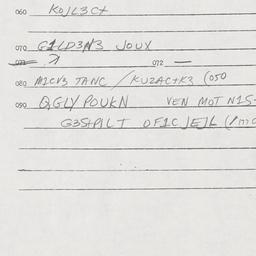 060 KOJL3C+
070 G1LD3N3 JOUX
071 072 —
080 M1CV3 TANC / KUZAC+K3 (050
090 QGLY POUKN VEN MOT N1S-
G3S+PILT OF1C JEJL